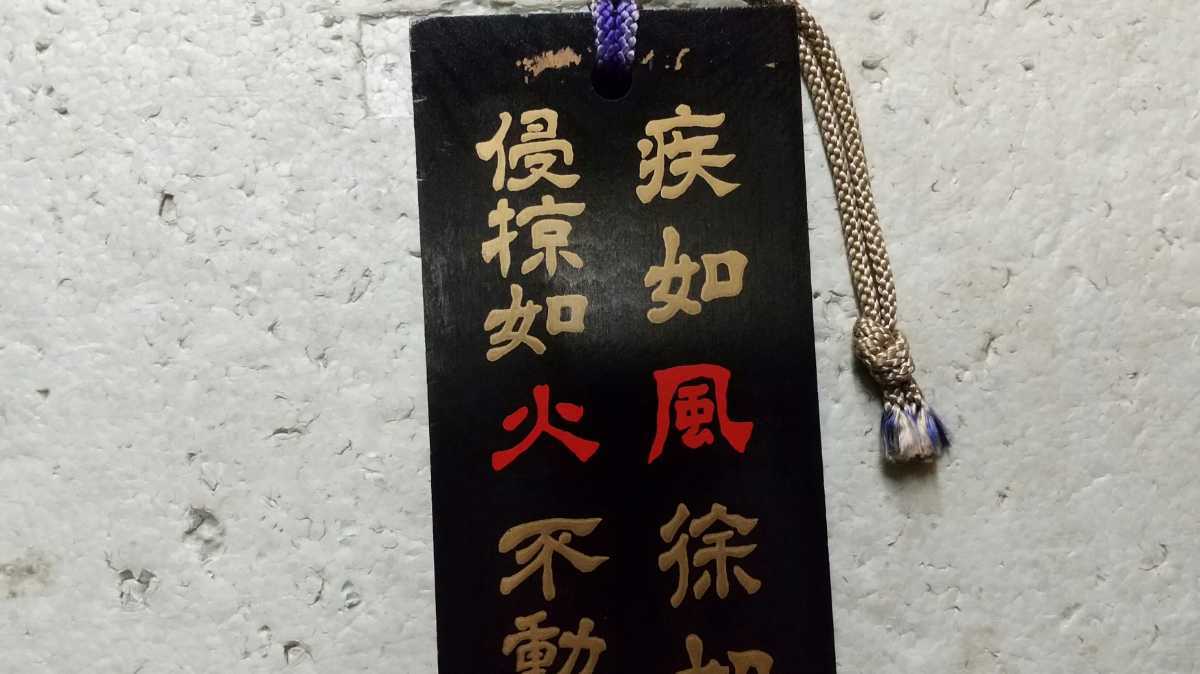 疾如風徐如
侵掠如火不動